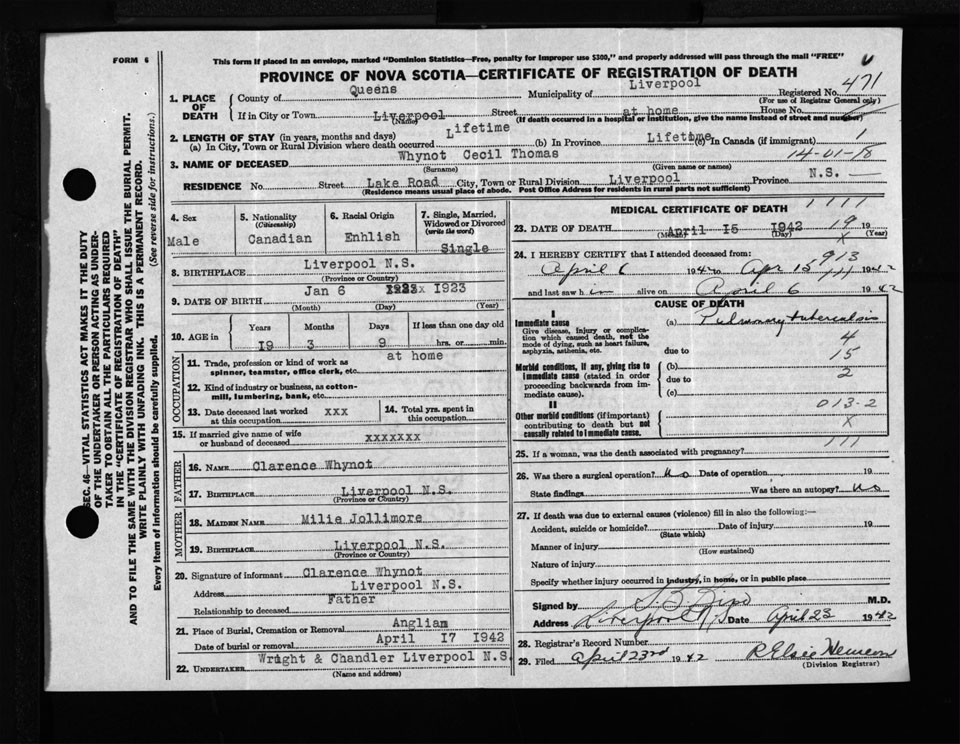 FORM 6
This form if placed in an envelope, marked "Dominion Statistics—Free, penalty for improper use $300," and properly addressed will pass through the mail "FREE"
PROVINCE OF NOVA SCOTIA—CERTIFICATE OF REGISTRATION OF DEATH
471
1. PLACE OF DEATH
County of Queens Municipality of Liverpool Registered No.
(For use of Registrar General only)
If in City or Town Liverpool Street at home House No.
(Name) (If death occurred in a hospital or institution, give the name instead of street and number)
2. LENGTH OF STAY (in years, months and days)
(a) In City, Town or Rural Division where death occurred Lifetime (b) In Province Lifetime (c) In Canada (if immigrant)
14-01-18
3. NAME OF DECEASED Whynot Cecil Thomas
(Surname) (Given name or names)
RESIDENCE No. Street Lake Road City, Town or Rural Division Liverpool Province N.S.
(Residence means usual place of abode. Post Office Address for residents in rural parts not sufficient)
SEC. 46—VITAL STATISTICS ACT MAKES IT THE DUTY
OF THE UNDERTAKER OR PERSON ACTING AS UNDER-
TAKER TO OBTAIN ALL THE PARTICULARS REQUIRED
IN THE "CERTIFICATE OF REGISTRATION OF DEATH"
AND TO FILE THE SAME WITH THE DIVISION REGISTRAR WHO SHALL ISSUE THE BURIAL PERMIT.
WRITE PLAINLY WITH UNFADING INK. THIS IS A PERMANENT RECORD.
Every item of information should be carefully supplied. (See reverse side for instructions.)
4. Sex
Male
5. Nationality
(Citizenship)
Canadian
6. Racial Origin
Enhlish
7. Single, Married, Widowed or Divorced
(write the word)
Single
8. BIRTHPLACE Liverpool N.S.
(Province or Country)
9. DATE OF BIRTH Jan 6 1923
(Month) (Day) (Year)
10. AGE in
Years Months Days If less than one day old
I9 3 9 hrs. or min.
OCCUPATION
11. Trade, profession or kind of work as spinner, teamster, office clerk, etc. at home
12. Kind of industry or business, as cotton-mill, lumbering, bank, etc.
13. Date deceased last worked at this occupation xxx
14. Total yrs. spent in this occupation
15. If married give name of wife or husband of deceased xxxxxxx
FATHER
16. NAME Clarence Whynot
17. BIRTHPLACE Liverpool N.S.
(Province or Country)
MOTHER
18. MAIDEN NAME Milie Jollimore
19. BIRTHPLACE Liverpool N.S.
(Province or Country)
20. Signature of informant Clarence Whynot
Address Liverpool N.S.
Relationship to deceased Father
21. Place of Burial, Cremation or Removal Anglian
Date of burial or removal April I7 1942
22. UNDERTAKER Wright & Chandler Liverpool N.S.
(Name and address)
MEDICAL CERTIFICATE OF DEATH
23. DATE OF DEATH April I5 1942 19
(Month) (Day) (Year)
24. I HEREBY CERTIFY that I attended deceased from:
April 6 1942 to Apr 15 1942
913
and last saw h im alive on April 6 1942
CAUSE OF DEATH
I
Immediate cause
Give disease, injury or complication which caused death, not the mode of dying, such as heart failure, asphyxia, asthenia, etc.
(a) Pulmonary tuberculosis
due to
4
15
2
Morbid conditions, if any, giving rise to immediate cause (stated in order proceeding backwards from immediate cause).
(b)
due to
(c)
II
Other morbid conditions (if important) contributing to death but not causally related to immediate cause.
013-2
X
25. If a woman, was the death associated with pregnancy?
26. Was there a surgical operation? No Date of operation 19
State findings Was there an autopsy? No
27. If death was due to external causes (violence) fill in also the following:—
Accident, suicide or homicide? Date of injury 19
(State which)
Manner of injury
(How sustained)
Nature of injury
Specify whether injury occurred in industry, in home, or in public place
Signed by M.D.
Address Liverpool N.S Date April 23 1942
28. Registrar's Record Number
29. Filed April 23rd 1942 R Elsie
(Division Registrar)